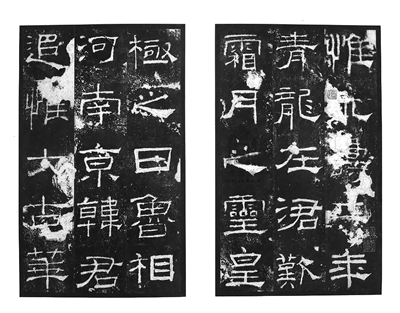 惟永壽二年
青龍在涒歎
霜月之靈皇
極之日魯相
河南京韓君
追惟大古華